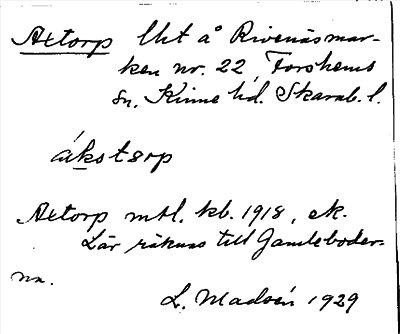 Axtorp lht å Rivenäsmar-
ken nr. 22, Forshems
sn, Kinne hd. Skarab. l.
ákstərp
Axtorp mtl. kb. 1918, ek.
Lär räknas till Gamleboder-
na.
L. Madsén 1929